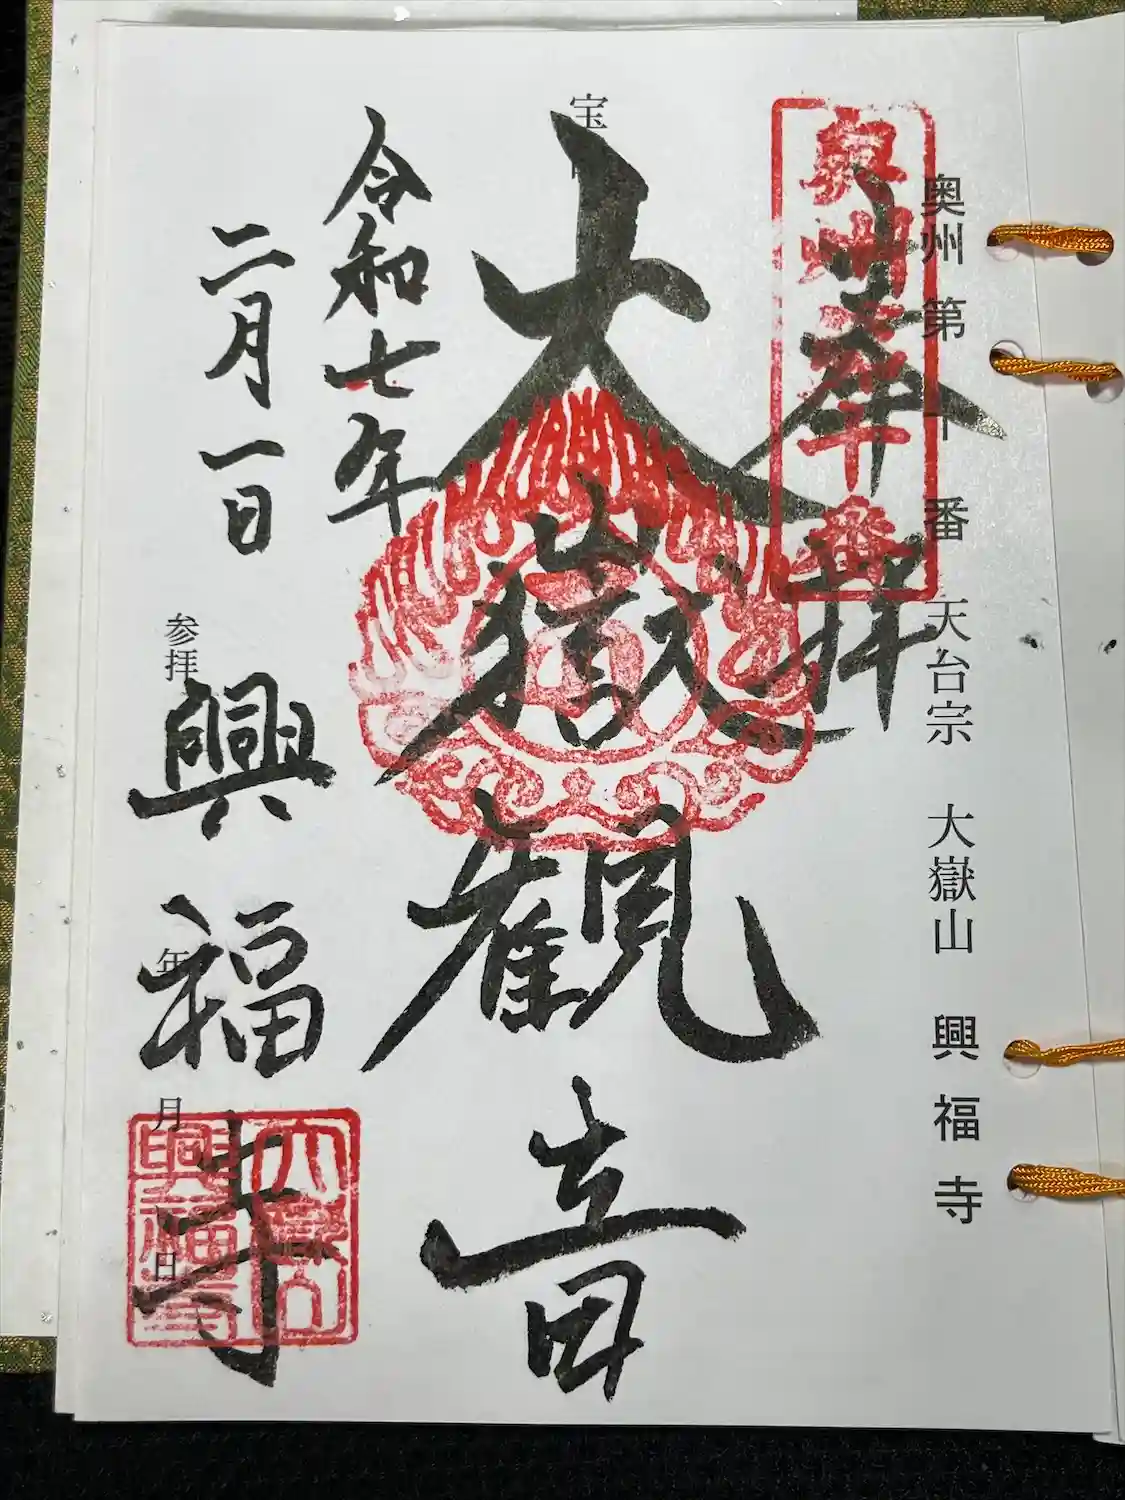 奥州 第十番 天台宗 大嶽山 興福寺
奥州第十番
奉拝
宝
大嶽観音
令和七年
二月一日
参拝 年 月 日
興福寺
大嶽山
興福寺